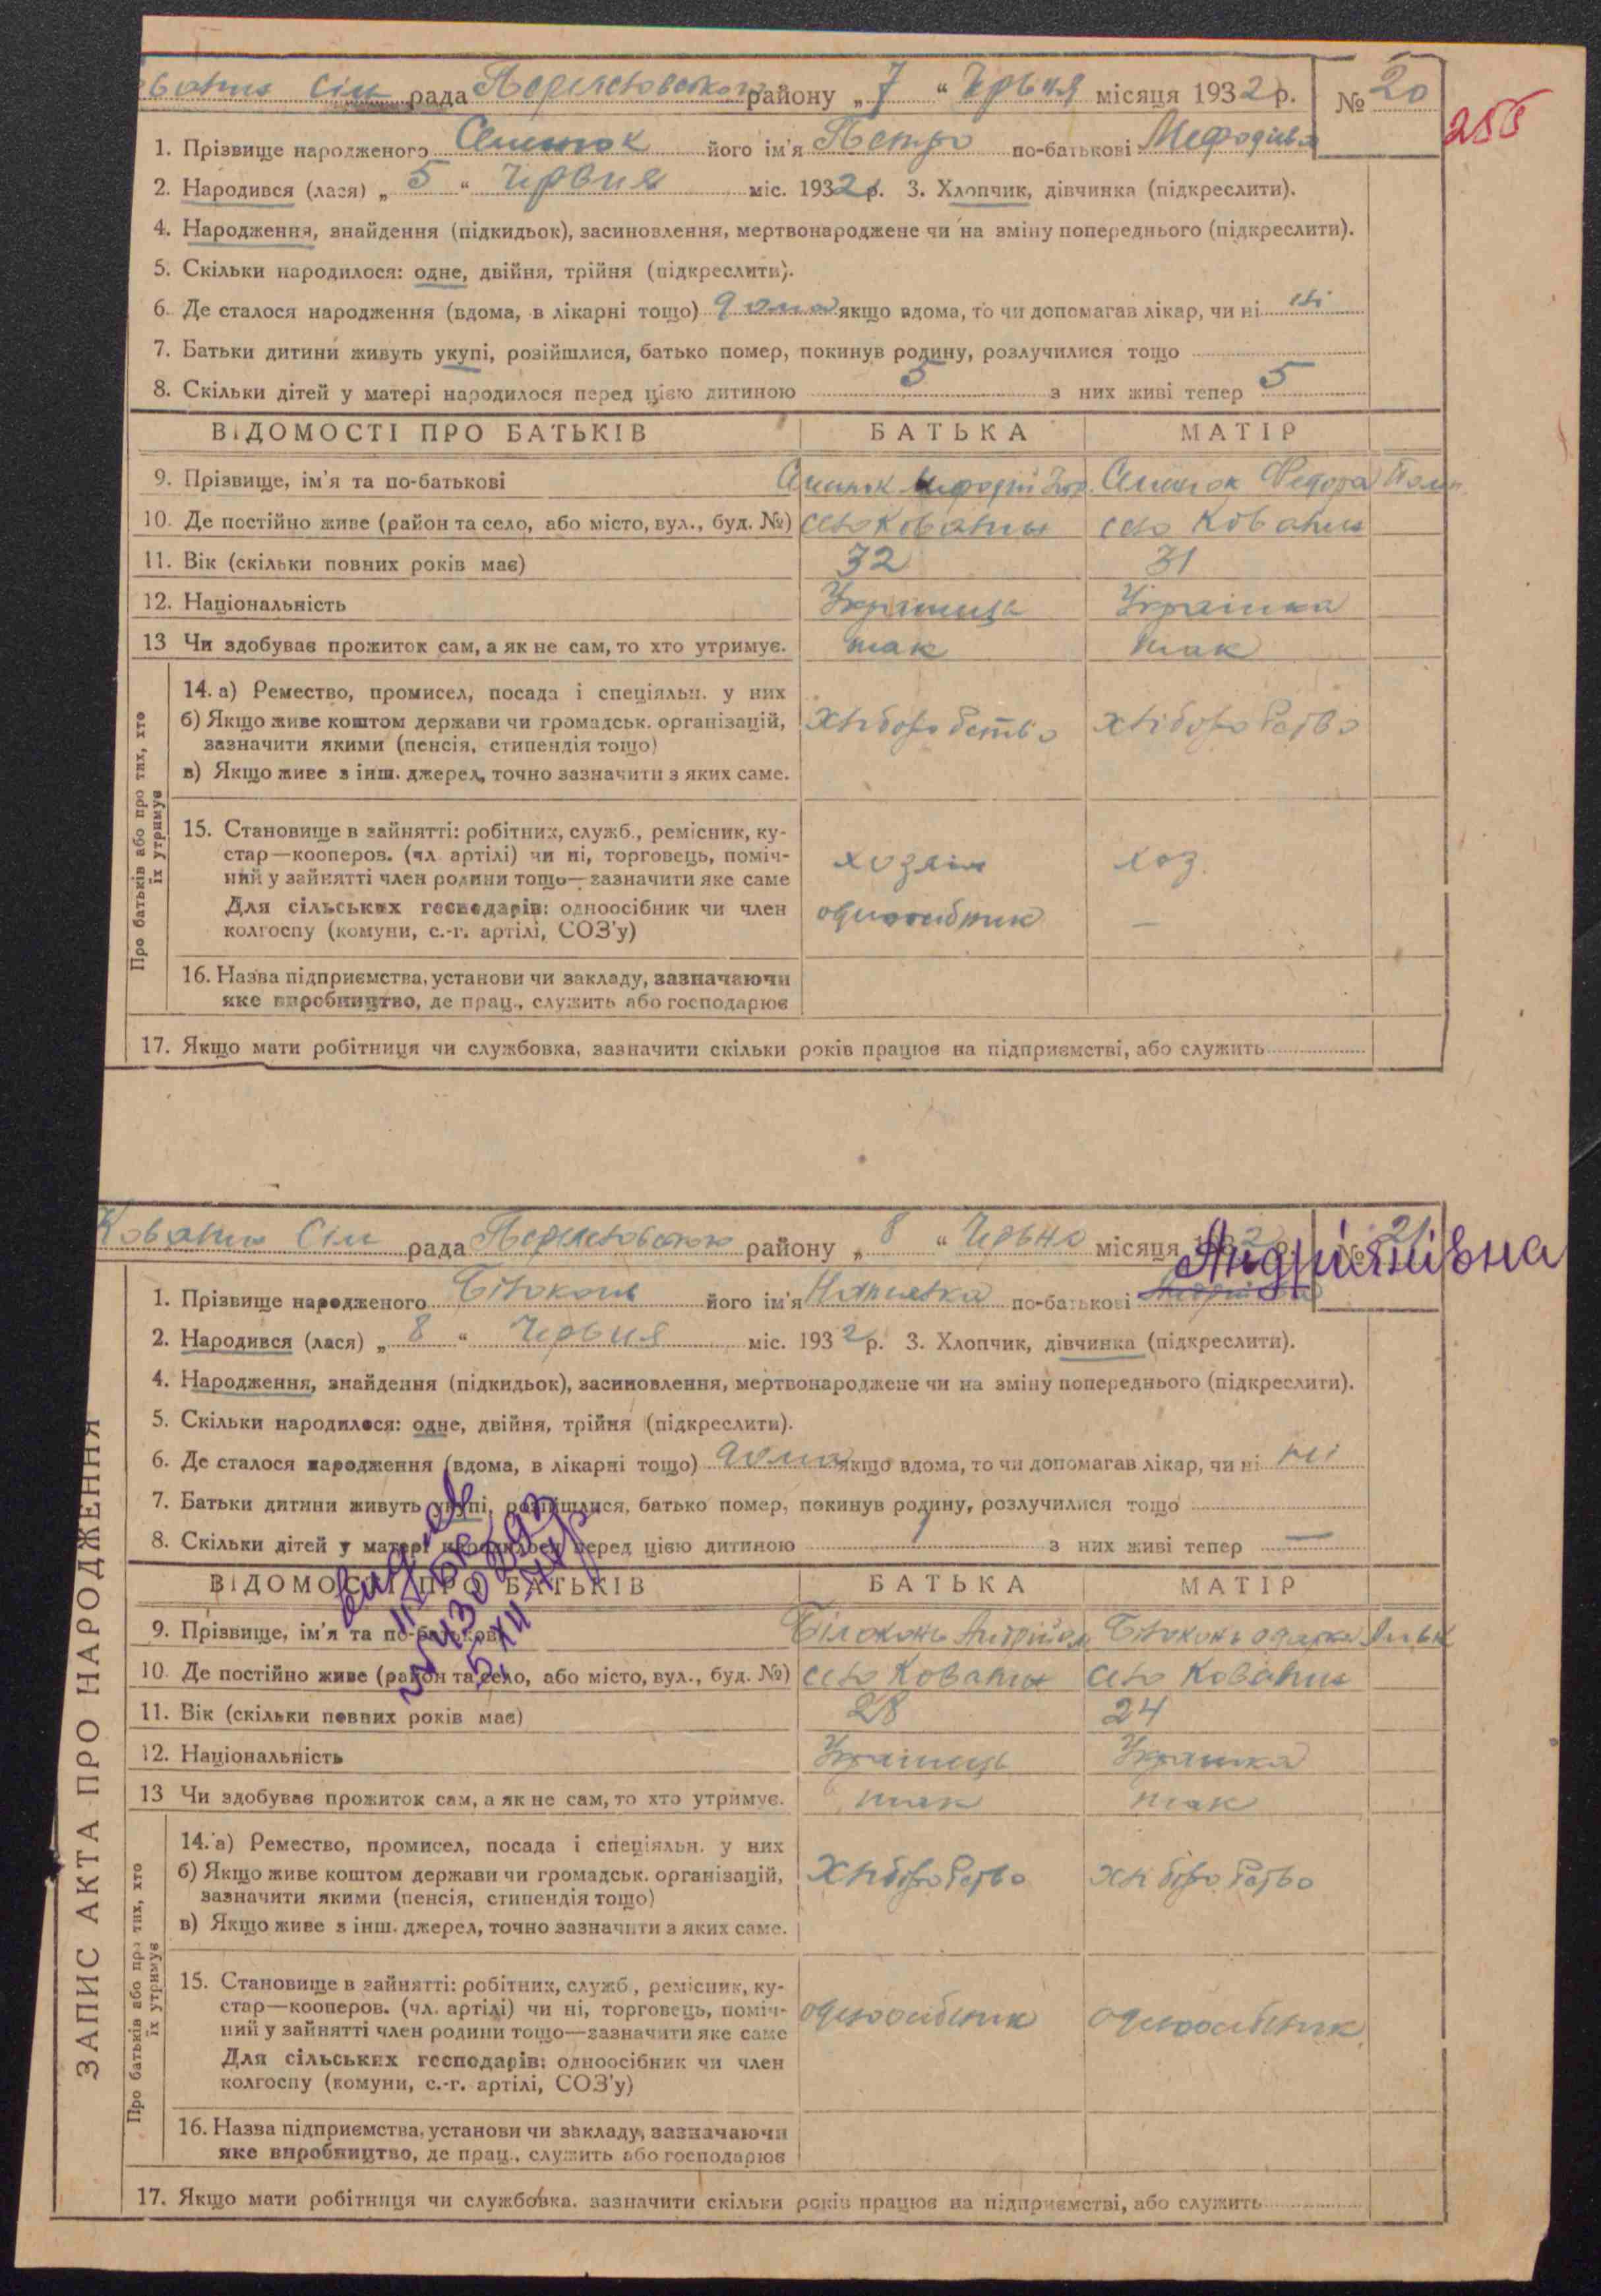 рада району „ 7 “ Червня місяця 1932 р. № 20
255
1. Прізвище народженого його ім'я Петро по-батькові
2. Народився (лася) „ 5 “ Червня міс. 1932 р. 3. Хлопчик, дівчинка (підкреслити).
4. Народження, знайдення (підкидьок), засиновлення, мертвонароджене чи на зміну попереднього (підкреслити).
5. Скільки народилося: одне, двійня, трійня (підкреслити).
6. Де сталося народження (вдома, в лікарні тощо) дома якщо вдома, то чи допомагав лікар, чи ні ні
7. Батьки дитини живуть укупі, розійшлися, батько помер, покинув родину, розлучилися тощо
8. Скільки дітей у матері народилося перед цією дитиною 5 з них живі тепер 5
ВІДОМОСТІ ПРО БАТЬКІВ БАТЬКА МАТІР
9. Прізвище, ім'я та по-батькові Федора
10. Де постійно живе (район та село, або місто, вул., буд. №) село Ковалин село Ковалин
11. Вік (скільки повних років має) 32 31
12. Національність Українець Українка
13 Чи здобуває прожиток сам, а як не сам, то хто утримує. так так
Про батьків або про тих, хто
їх утримує
14. а) Ремество, промисел, посада і спеціяльн. у них
б) Якщо живе коштом держави чи громадськ. організацій,
зазначити якими (пенсія, стипендія тощо)
хліборобство хліборобство
в) Якщо живе з інш. джерел, точно зазначити з яких саме.
15. Становище в зайнятті: робітник, служб., ремісник, ку-
стар—кооперов. (чл. артілі) чи ні, торговець, поміч-
ний у зайнятті член родини тощо—зазначити яке саме
хозяїн хоз.
Для сільських господарів: одноосібник чи член
колгоспу (комуни, с.-г. артілі, СОЗ'у)
одноосібник —
16. Назва підприємства, установи чи закладу, зазначаючи
яке виробництво, де прац., служить або господарює
17. Якщо мати робітниця чи службовка, зазначити скільки років працює на підприємстві, або служить
рада району „ 8 “ місяця р. № 21
Андріянівна
1. Прізвище народженого Білоконь його ім'я по-батькові
2. Народився (лася) „ 8 “ Червня міс. 1932 р. 3. Хлопчик, дівчинка (підкреслити).
4. Народження, знайдення (підкидьок), засиновлення, мертвонароджене чи на зміну попереднього (підкреслити).
5. Скільки народилося: одне, двійня, трійня (підкреслити).
6. Де сталося народження (вдома, в лікарні тощо) дома якщо вдома, то чи допомагав лікар, чи ні ні
7. Батьки дитини живуть укупі, розійшлися, батько помер, покинув родину, розлучилися тощо
8. Скільки дітей у матері народилося перед цією дитиною 1 з них живі тепер —
ВІДОМОСТІ ПРО БАТЬКІВ БАТЬКА МАТІР
9. Прізвище, ім'я та по-батькові Білоконь Білоконь
10. Де постійно живе (район та село, або місто, вул., буд. №) село Ковалин село Ковалин
11. Вік (скільки повних років має) 28 24
12. Національність Українець Українка
13 Чи здобуває прожиток сам, а як не сам, то хто утримує. так так
Про батьків або про тих, хто
їх утримує
14. а) Ремество, промисел, посада і спеціяльн. у них
б) Якщо живе коштом держави чи громадськ. організацій,
зазначити якими (пенсія, стипендія тощо)
хліборобство хліборобство
в) Якщо живе з інш. джерел, точно зазначити з яких саме.
15. Становище в зайнятті: робітник, служб., ремісник, ку-
стар—кооперов. (чл. артілі) чи ні, торговець, поміч-
ний у зайнятті член родини тощо—зазначити яке саме
одноосібник одноосібник
Для сільських господарів: одноосібник чи член
колгоспу (комуни, с.-г. артілі, СОЗ'у)
16. Назва підприємства, установи чи закладу, зазначаючи
яке виробництво, де прац., служить або господарює
17. Якщо мати робітниця чи службовка, зазначити скільки років працює на підприємстві, або служить
ЗАПИС АКТА ПРО НАРОДЖЕННЯ